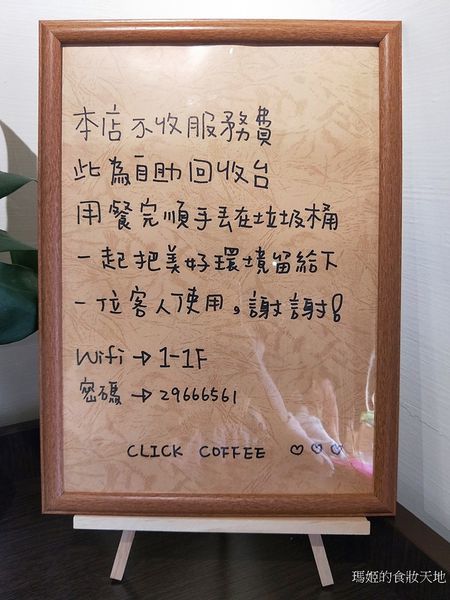 本店不收服務費
此為自助回收台
用餐完順手丟在垃圾桶
一起把美好環境留給下
一位客人使用。謝謝!
Wifi → 1-1F
密碼 → 29666561
CLICK COFFEE ♡♡♡
瑪姬的食妝天地